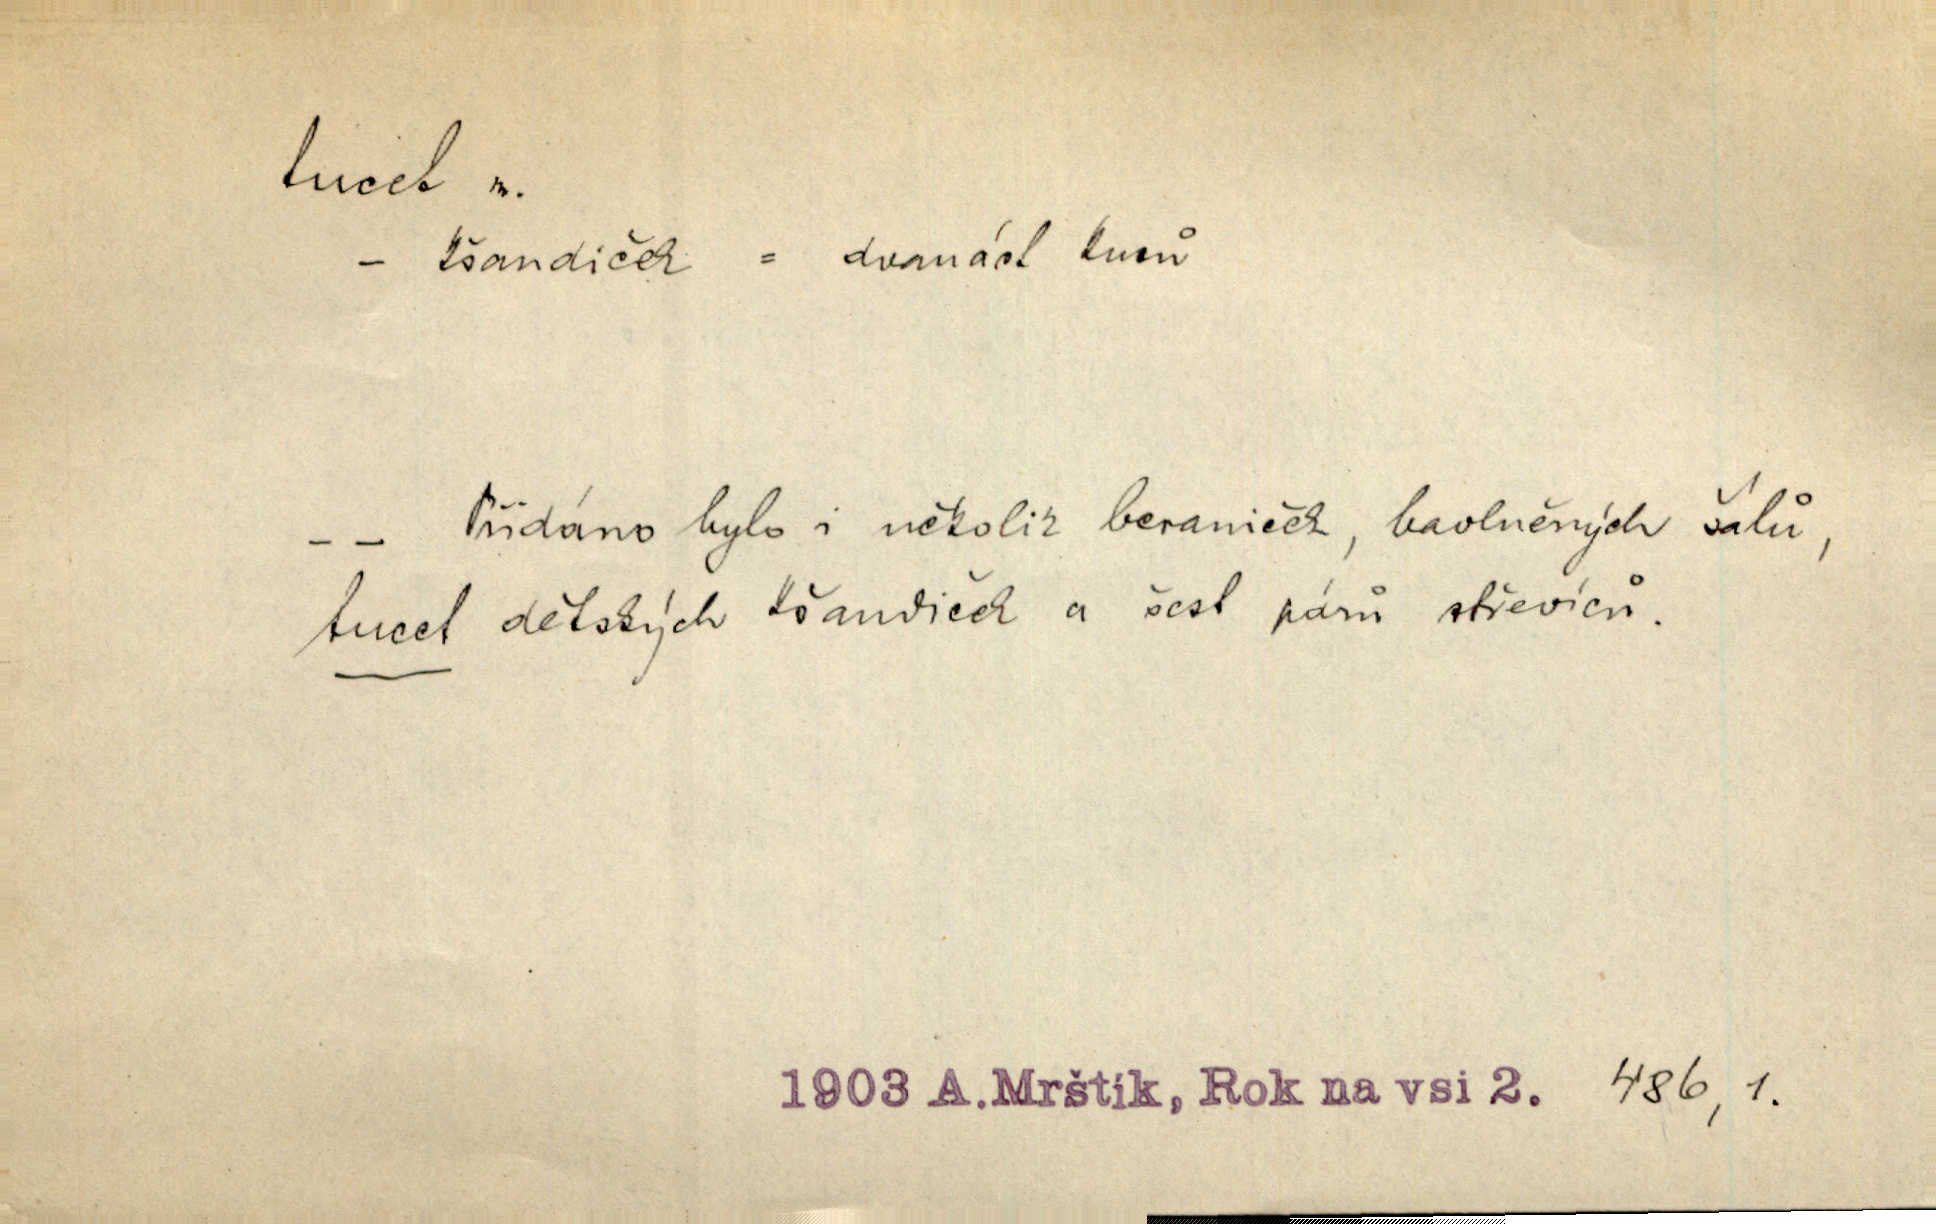 tucet m.
– kšandiček = dvanáct kusů
– – Přidáno bylo i několik beraniček, bavlněných šálů,
tucet dětských kšandiček a šest párů střevíců.
1903 A.Mrštík, Rok na vsi 2. 486, 1.